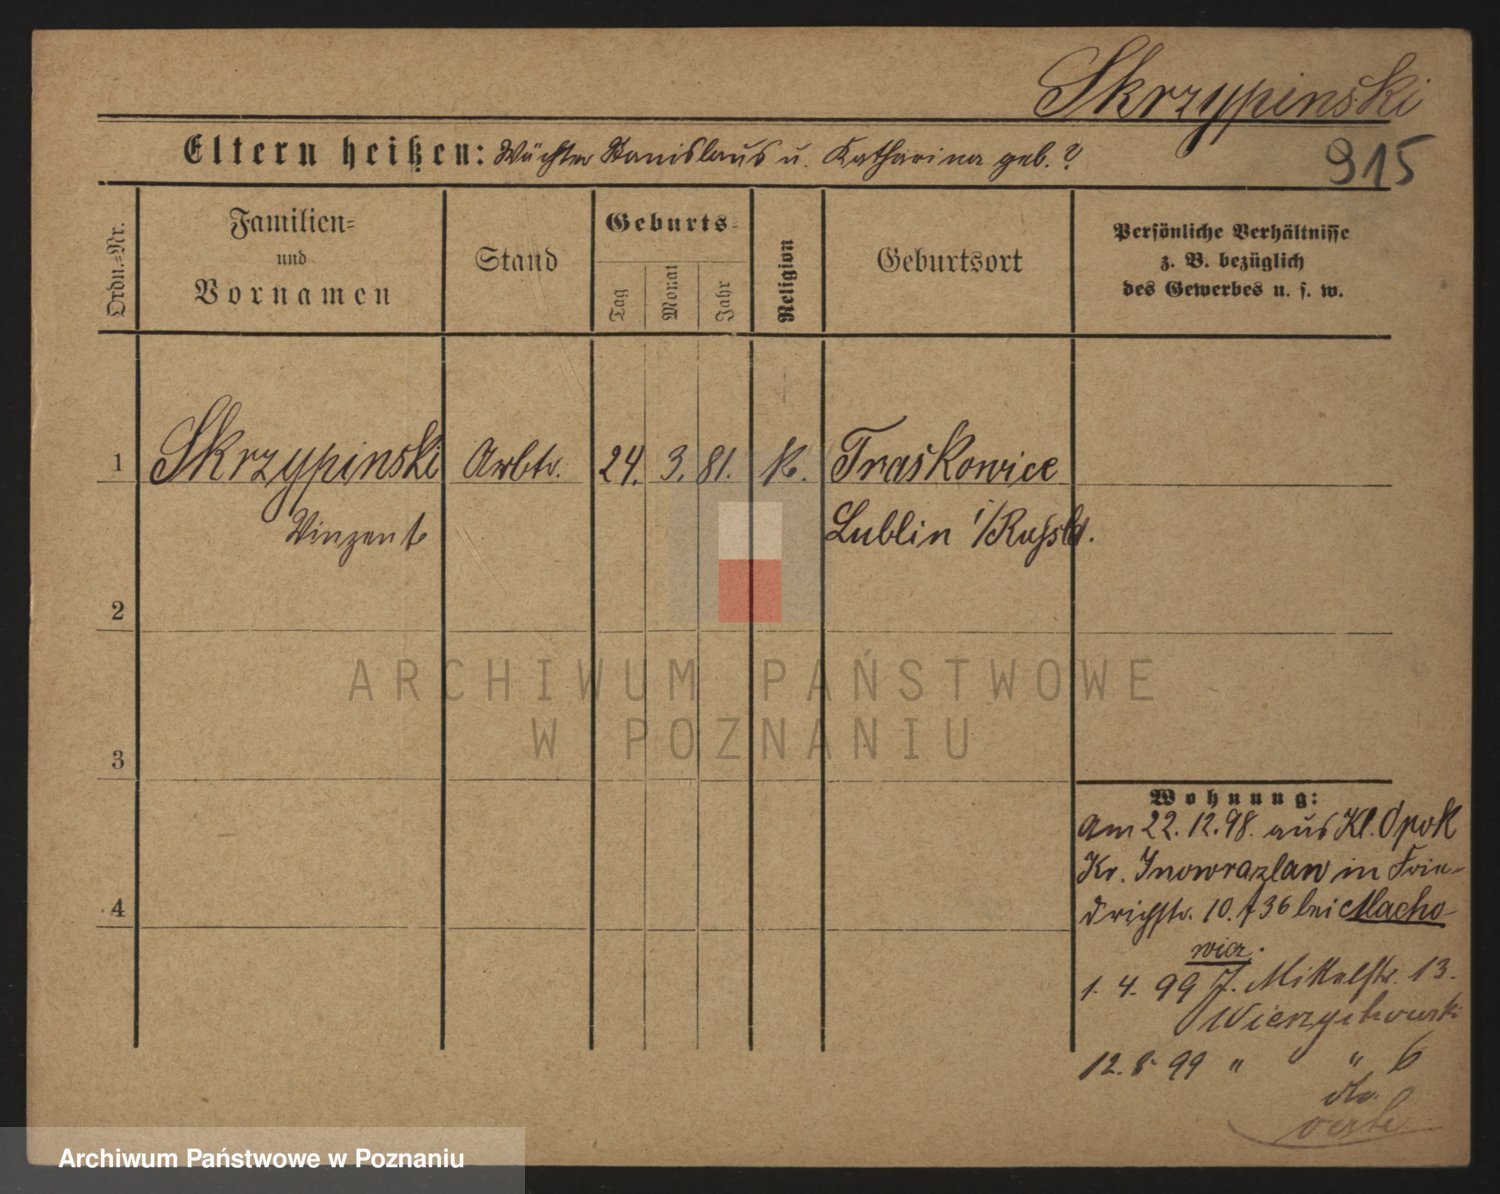 Skrzypinski
Eltern heißen: Wächter Stanislaus u. Katharina geb. ?
915
Ordn.-Nr.
Familien-
und
Vornamen
Stand
Geburts-
Tag
Monat
Jahr
Religion
Geburtsort
Persönliche Verhältnisse
z. B. bezüglich
des Gewerbes u. s. w.
1 Skrzypinski Arbtr. 24. 3. 81. k. Traskowice
Vinzent Lublin i/Russld.
2
ARCHIWUM PAŃSTWOWE
W POZNANIU
3
Wohnung:
Am 22.12.98. aus Kl. Opok
Kr. Inowrazlaw in Frie-
4
drichstr. 10. 36 bei Macho-
wicz.
1. 4. 99 J. Mittelstr. 13.
12. 8. 99 " " 6
Archiwum Państwowe w Poznaniu